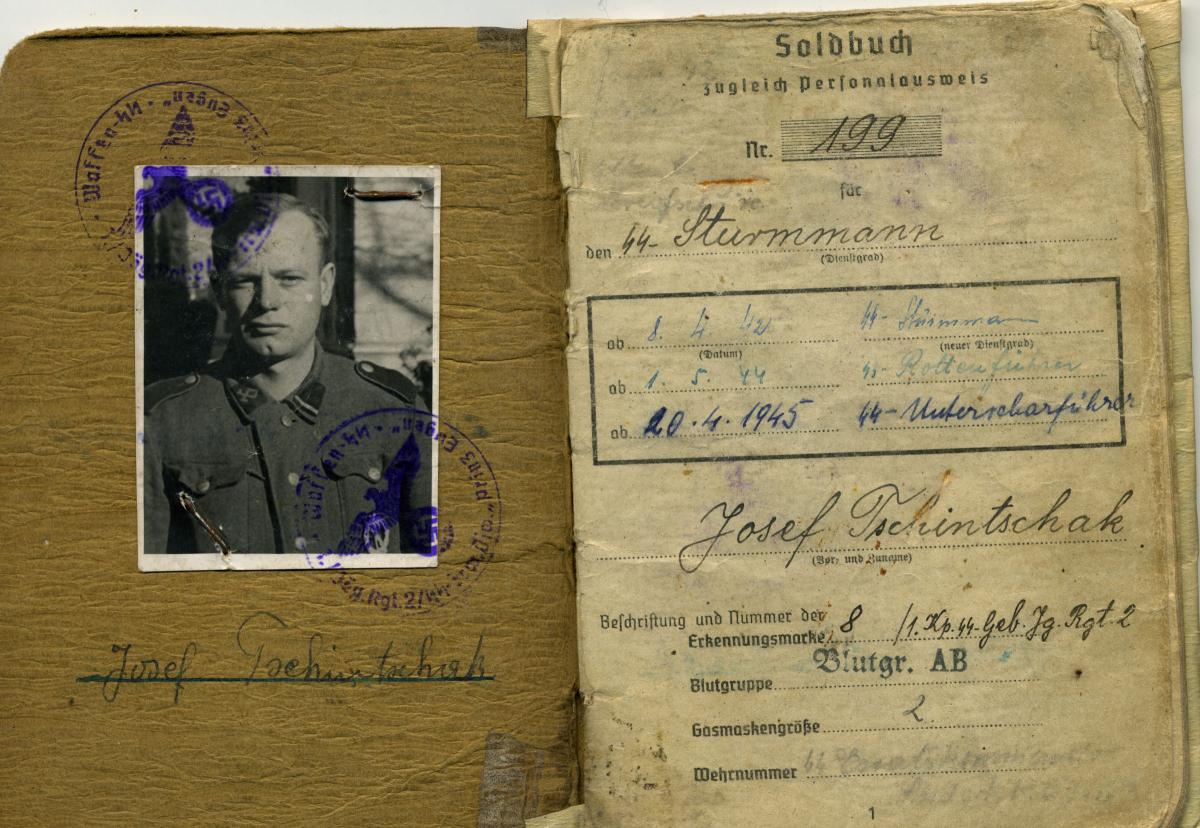 Waffen-SS
Josef Tschintschak
Soldbuch
zugleich Personalausweis
Nr. 199
für
den SS- Sturmmann
(Dienstgrad)
ab 8. 4. 42 SS- Sturmmann
(Datum) (neuer Dienstgrad)
ab 1. 5. 44 SS- Rottenführer
ab 20.4.1945 SS-Unterscharführer
Josef Tschintschak
(Vor- und Zuname)
Beschriftung und Nummer der
Erkennungsmarke 8 /1.Kp.SS-Geb.Jg.Rgt 2
Blutgr. AB
Blutgruppe
Gasmaskengröße 2
Wehrnummer SS
1